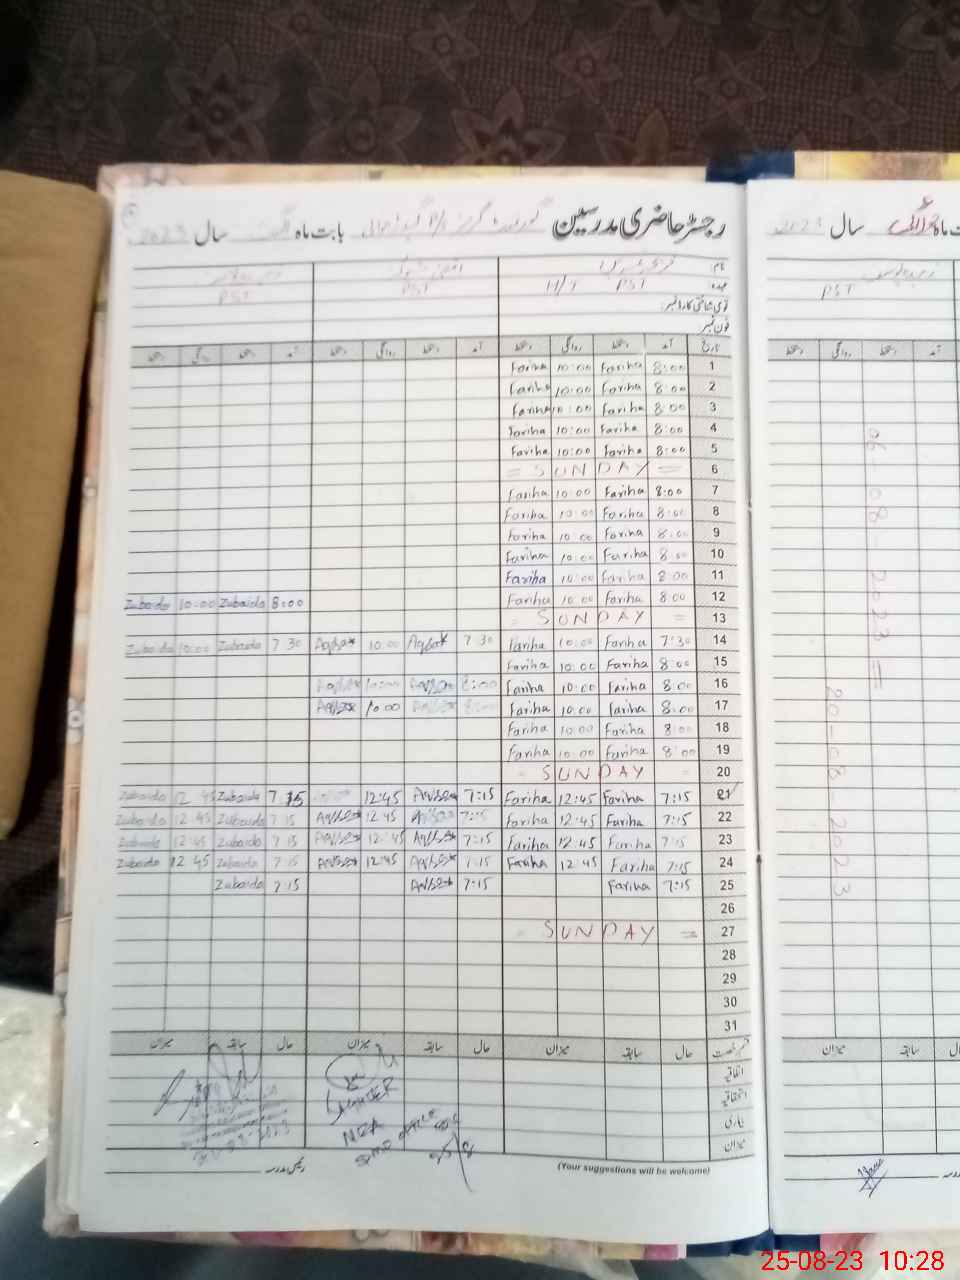 رجسٹر حاضری مدرسین گورنمنٹ گرلز بابت ماہ اگست سال 2023
نام:
عہدہ: H/T PST PST PST
قومی شناختی کارڈ نمبر:
فون نمبر
تاریخ آمد دستخط روانگی دستخط آمد دستخط روانگی دستخط آمد دستخط روانگی دستخط
1 8:00 Fariha 10:00 Fariha
2 8:00 Fariha 10:00 Fariha
3 8:00 Fariha 10:00 Fariha
4 8:00 Fariha 10:00 Fariha
5 8:00 Fariha 10:00 Fariha
6 = SUNDAY =
7 8:00 Fariha 10:00 Fariha
8 8:00 Fariha 10:00 Fariha
9 8:00 Fariha 10:00 Fariha
10 8:00 Fariha 10:00 Fariha
11 8:00 Fariha 10:00 Fariha
12 8:00 Fariha 10:00 Fariha 8:00 Zubaida 10:00 Zubaida
13 = SUNDAY =
14 7:30 Fariha 10:00 Fariha 7:30 Aqsa 10:00 Aqsa 7:30 Zubaida 10:00 Zubaida
15 8:00 Fariha 10:00 Fariha
16 8:00 Fariha 10:00 Fariha 8:00 Aqsa 10:00 Aqsa
17 8:00 Fariha 10:00 Fariha 8:00 Aqsa 10:00 Aqsa
18 8:00 Fariha 10:00 Fariha
19 8:00 Fariha 10:00 Fariha
20 = SUNDAY =
21 7:15 Fariha 12:45 Fariha 7:15 Aqsa 12:45 7:15 Zubaida 12:45 Zubaida
22 7:15 Fariha 12:45 Fariha 7:15 Aqsa 12:45 Aqsa 7:15 Zubaida 12:45 Zubaida
23 7:15 Fariha 12:45 Fariha 7:15 Aqsa 12:45 Aqsa 7:15 Zubaida 12:45 Zubaida
24 7:15 Fariha 12:45 Fariha 7:15 Aqsa 12:45 Aqsa 7:15 Zubaida 12:45 Zubaida
25 7:15 Fariha 7:15 Aqsa 7:15 Zubaida
26
27 = SUNDAY =
28
29
30
31
قسم رخصت حال سابقہ میزان حال سابقہ میزان حال سابقہ میزان
اتفاقیہ
استحقاقیہ
بیماری
میزان
MEA
(Your suggestions will be welcome)
رئیس مدرسہ
ماہ جولائی سال 2023
PST
آمد دستخط روانگی دستخط
06-08-2023 =
20-08-2023
سابقہ میزان
25-08-23 10:28